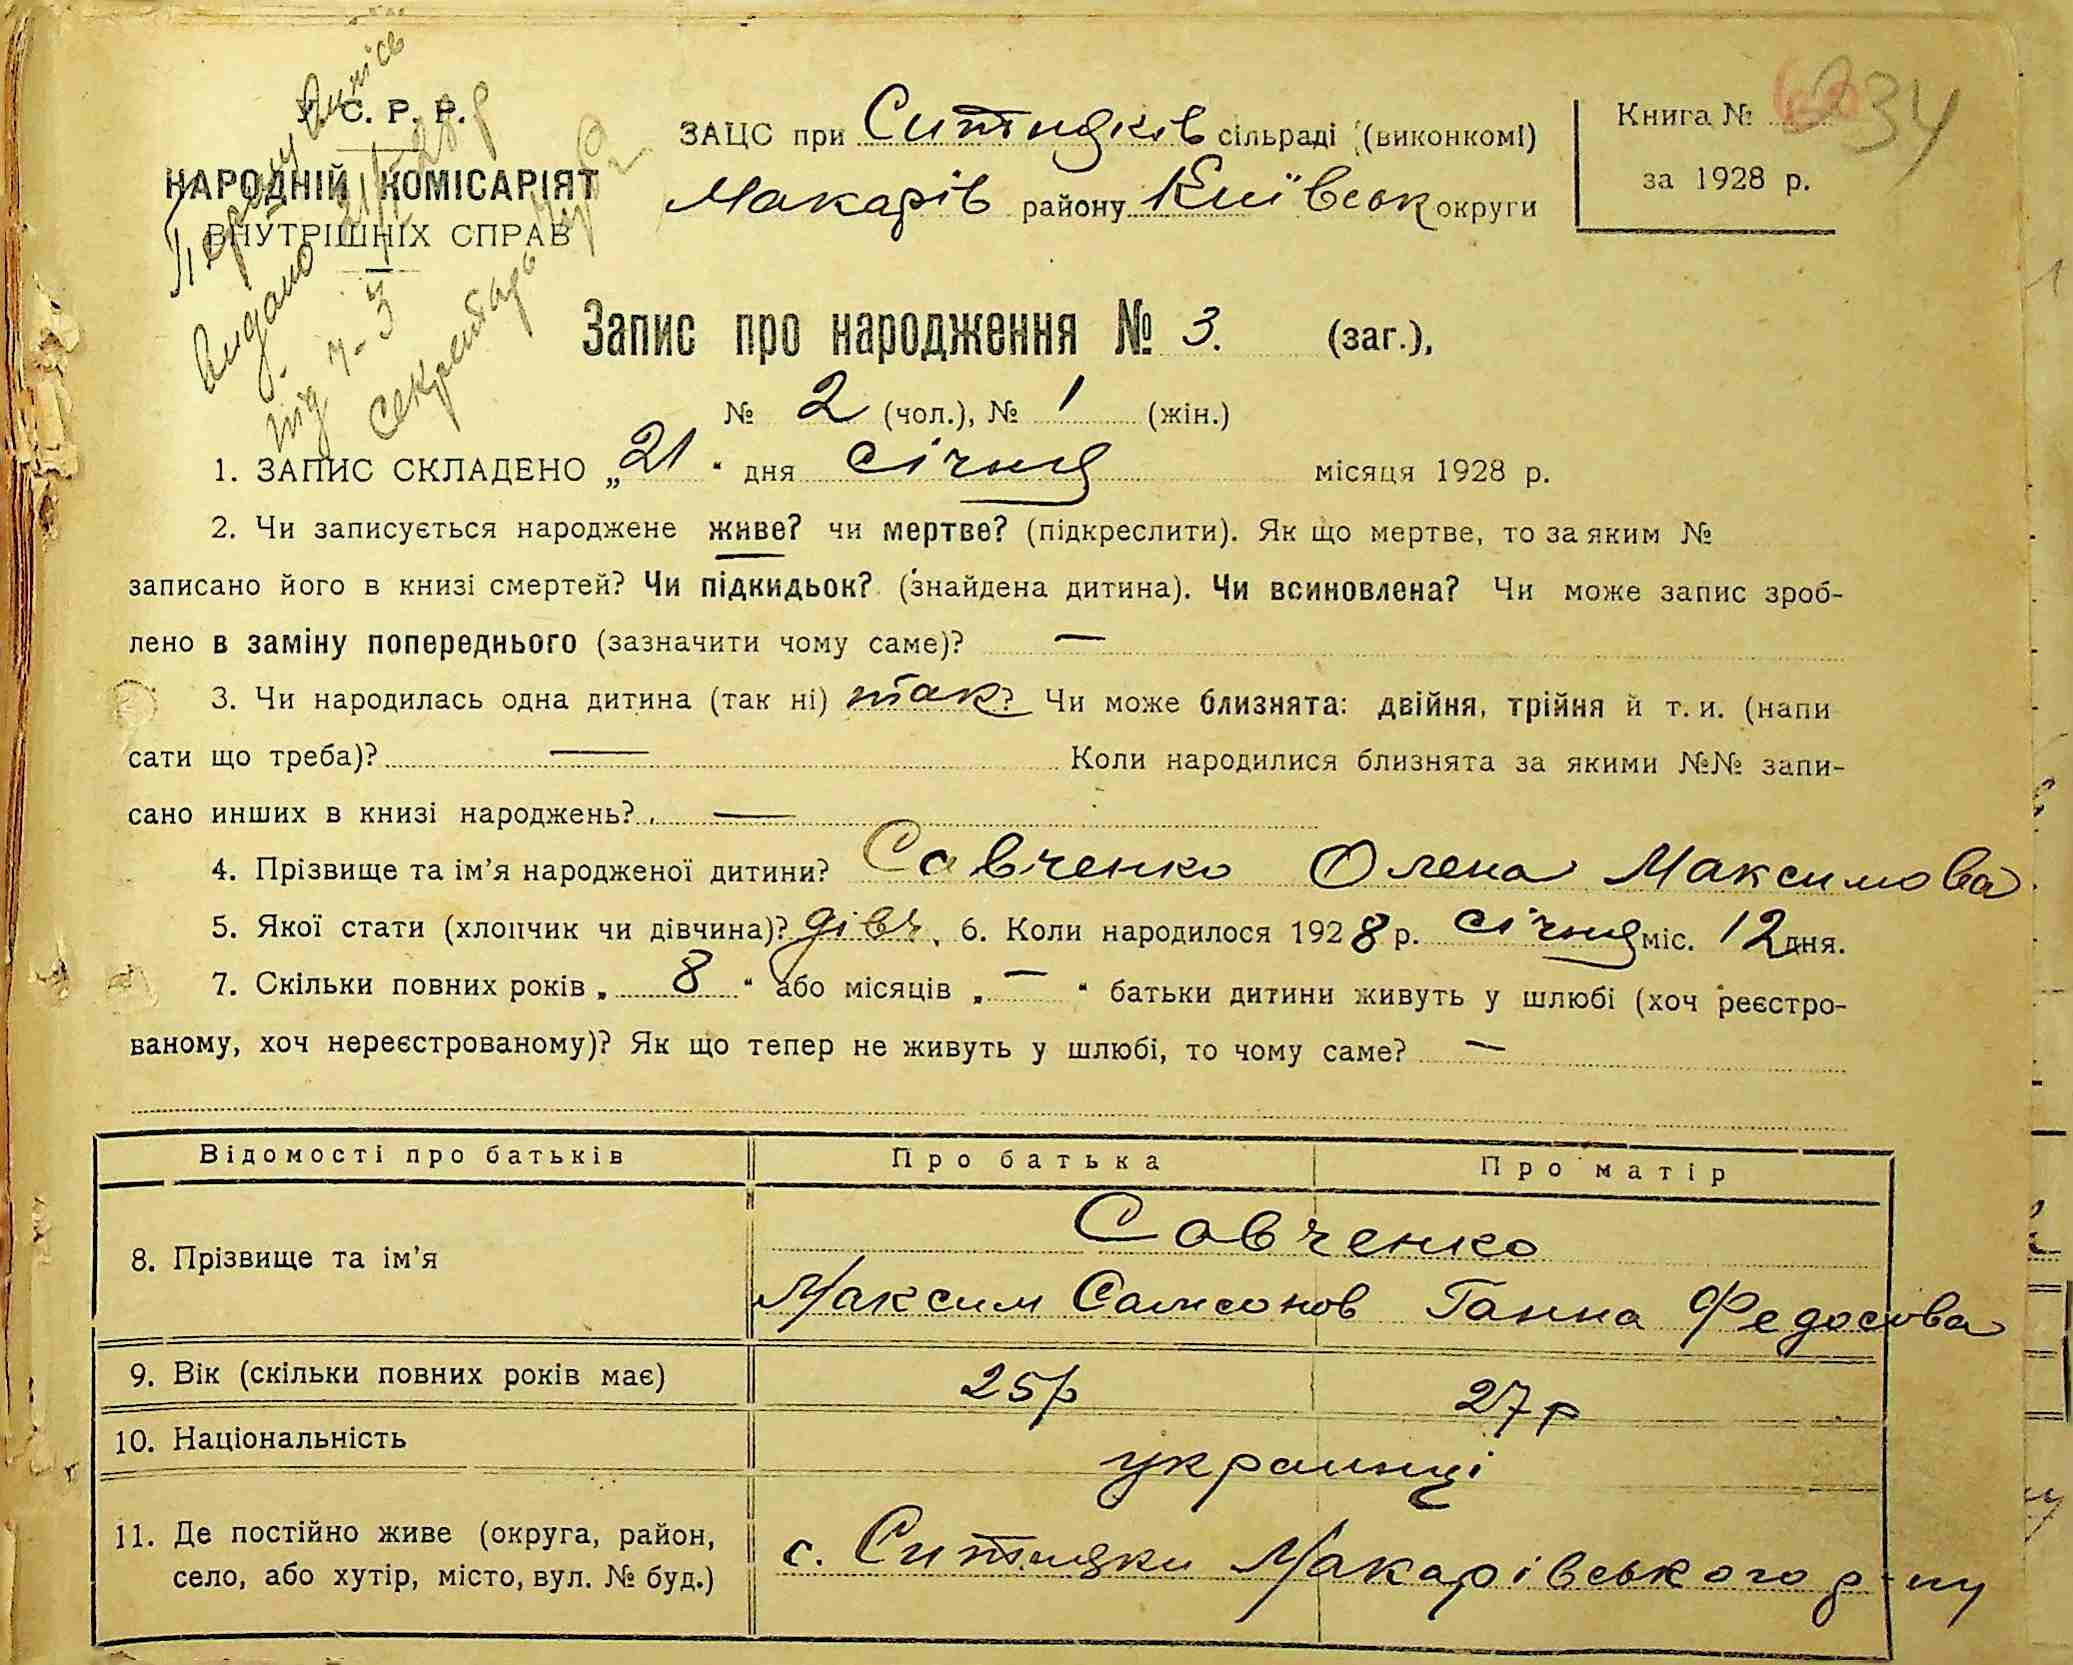 У. С. Р. Р.
НАРОДНІЙ КОМІСАРІЯТ
ВНУТРІШНІХ СПРАВ
Першу випись
видано 21/I 28 р
під ч-3
Секретарь
ЗАЦС при Ситняків сільраді (виконкомі)
Макарів району Київськ округи
Книга №
за 1928 р.
234
Запис про народження № 3. (заг.),
№ 2 (чол.), № 1 (жін.)
1. ЗАПИС СКЛАДЕНО „21“ дня січня місяця 1928 р.
2. Чи записується народжене живе? чи мертве? (підкреслити). Як що мертве, то за яким №
записано його в книзі смертей? Чи підкидьок? (знайдена дитина). Чи всиновлена? Чи може запис зроб-
лено в заміну попереднього (зазначити чому саме)? —
3. Чи народилась одна дитина (так ні) так? Чи може близнята: двійня, трійня й т. и. (напи
сати що треба)? — Коли народилися близнята за якими №№ запи-
сано инших в книзі народжень? —
4. Прізвище та ім’я народженої дитини? Савченко Олена Максимова
5. Якої стати (хлопчик чи дівчина)? дівч. 6. Коли народилося 1928 р. січня міс. 12 дня.
7. Скільки повних років „8“ або місяців „—“ батьки дитини живуть у шлюбі (хоч реєстро-
ваному, хоч нереєстрованому)? Як що тепер не живуть у шлюбі, то чому саме? —
Відомості про батьків Про батька Про матір
8. Прізвище та ім’я Савченко
Максим Самсонов Ганна Федосова
9. Вік (скільки повних років має) 25р 27р
10. Національність украинці
11. Де постійно живе (округа, район, село, або хутір, місто, вул. № буд.) с. Ситняки Макарівського р-ну